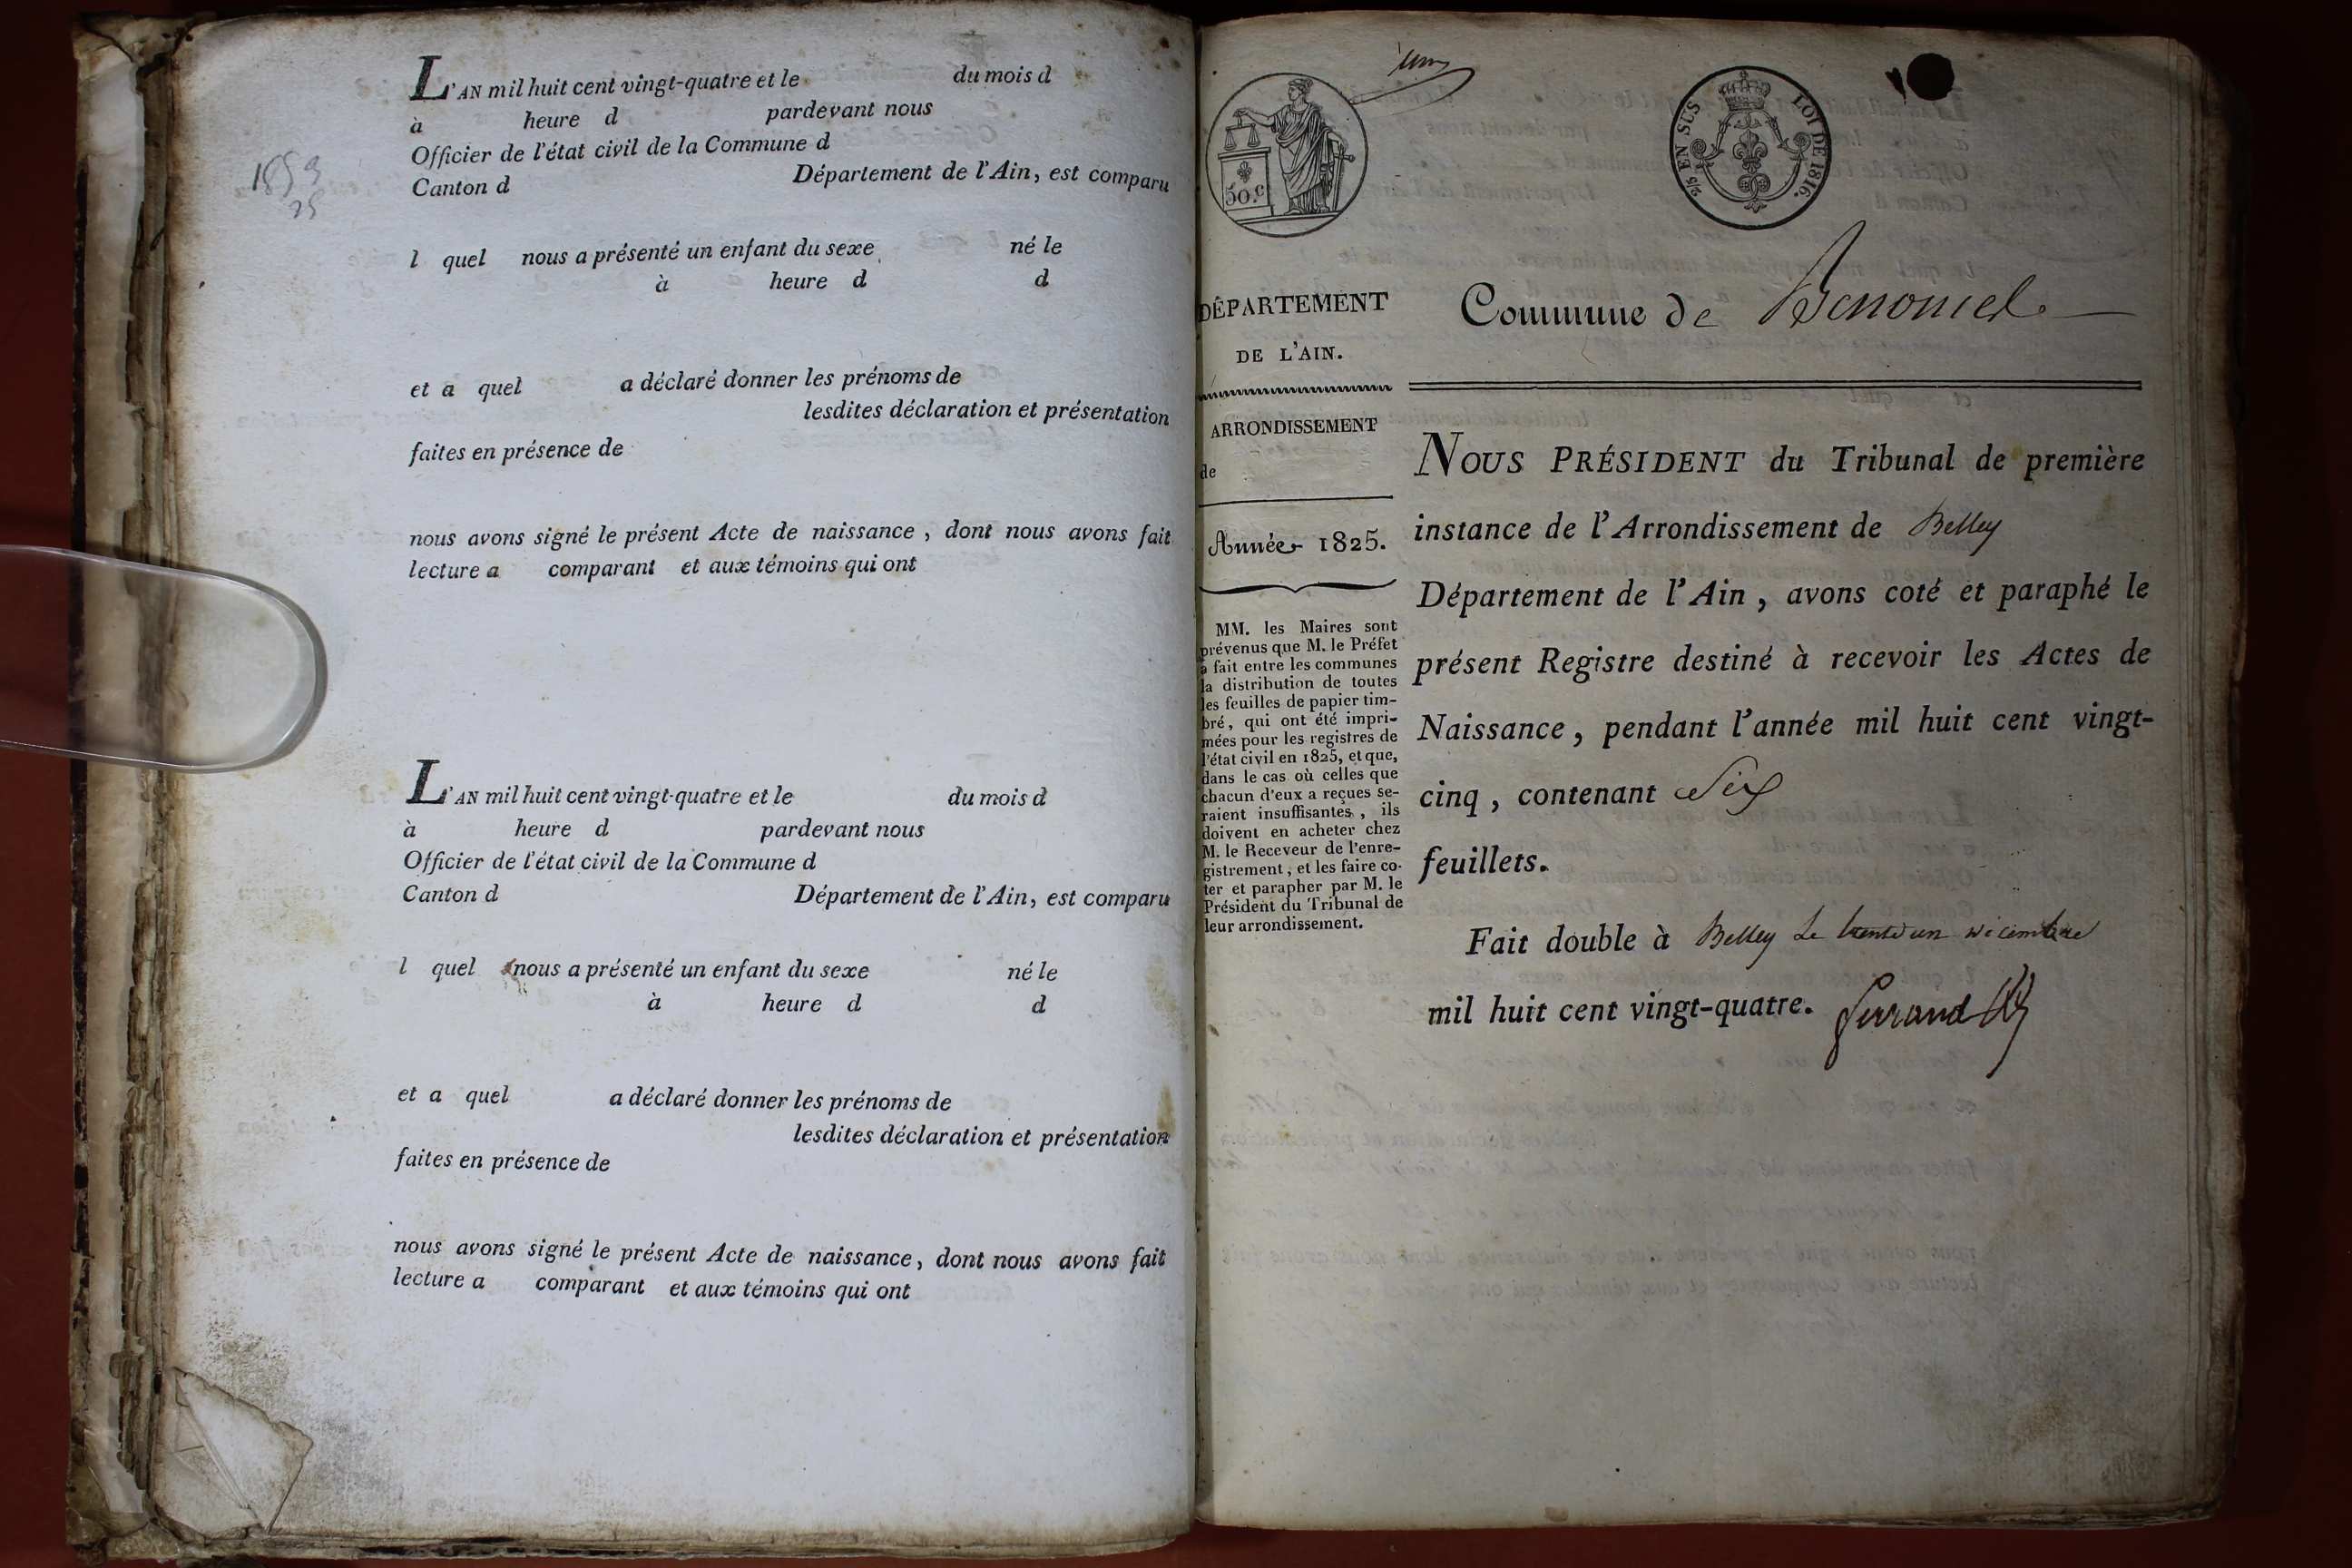 L'AN mil huit cent vingt-quatre et le du mois d
à heure d pardevant nous
Officier de l'état civil de la Commune d
Canton d Département de l'Ain, est comparu
l quel nous a présenté un enfant du sexe né le
à heure d d
et a quel a déclaré donner les prénoms de
lesdites déclaration et présentation
faites en présence de
nous avons signé le présent Acte de naissance, dont nous avons fait
lecture a comparant et aux témoins qui ont
L'AN mil huit cent vingt-quatre et le du mois d
à heure d pardevant nous
Officier de l'état civil de la Commune d
Canton d Département de l'Ain, est comparu
l quel nous a présenté un enfant du sexe né le
à heure d d
et a quel a déclaré donner les prénoms de
lesdites déclaration et présentation
faites en présence de
nous avons signé le présent Acte de naissance, dont nous avons fait
lecture a comparant et aux témoins qui ont
50.c
2/5 EN SUS LOI DE 1816.
DÉPARTEMENT
DE L'AIN.
ARRONDISSEMENT
de
Année 1825.
MM. les Maires sont
prévenus que M. le Préfet
a fait entre les communes
la distribution de toutes
les feuilles de papier tim-
bré, qui ont été impri-
mées pour les registres de
l'état civil en 1825, et que,
dans le cas où celles que
chacun d'eux a reçues se-
raient insuffisantes, ils
doivent en acheter chez
M. le Receveur de l'enre-
gistrement, et les faire co-
ter et parapher par M. le
Président du Tribunal de
leur arrondissement.
Commune de Benonces
NOUS PRÉSIDENT du Tribunal de première
instance de l'Arrondissement de Belley
Département de l'Ain, avons coté et paraphé le
présent Registre destiné à recevoir les Actes de
Naissance, pendant l'année mil huit cent vingt-
cinq, contenant Six
feuillets.
Fait double à Belley Le trente un décembre
mil huit cent vingt-quatre.